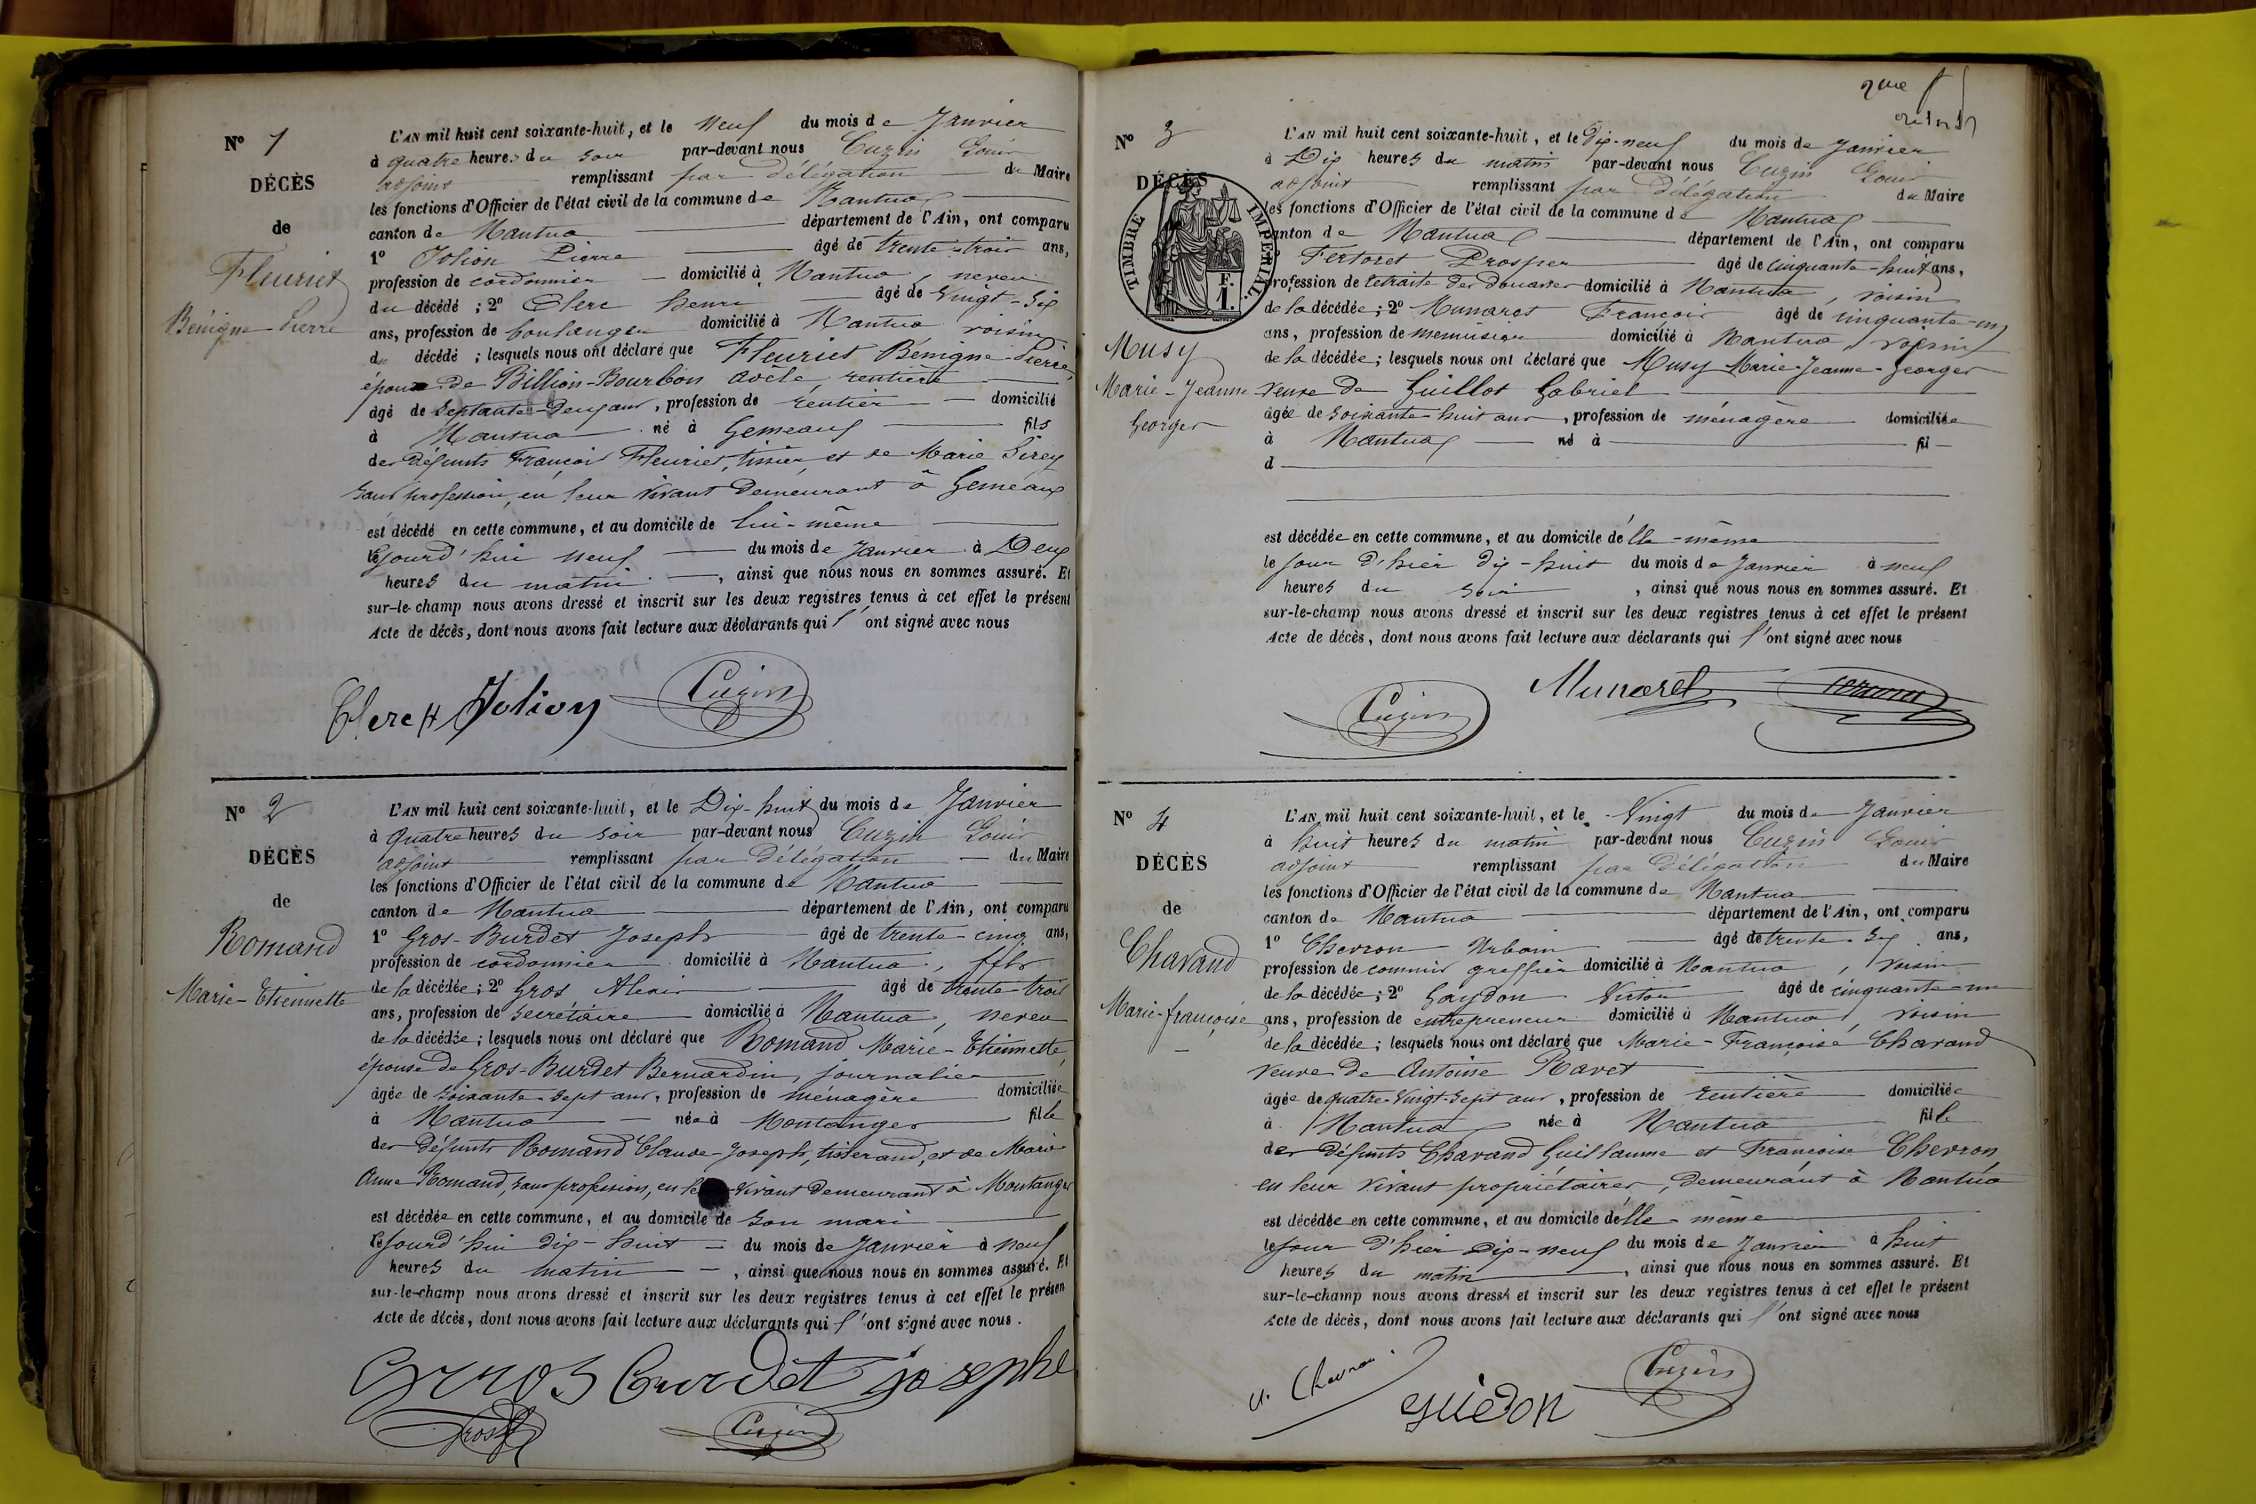 N° 1
DÉCÈS
de
Fleuriet
Bénigne Pierre
L'AN mil huit cent soixante-huit, et le neuf du mois de Janvier
à quatre heures du soir par-devant nous Cuzin Louis
adjoint remplissant par délégation du Maire
les fonctions d'Officier de l'état civil de la commune de Nantua
canton de Nantua département de l'Ain, ont comparu
1° Jolion Pierre âgé de trente-trois ans,
profession de cordonnier domicilié à Nantua, neveu
du décédé ; 2° Clerc henri âgé de Vingt-six
ans, profession de boulanger domicilié à Nantua voisin
du décédé ; lesquels nous ont déclaré que Fleuriet Bénigne-Pierre,
époux de Billion-Bourbon adèle, rentière
âgé de septante-deux ans, profession de rentier domicilié
à Nantua né à Gemeaux fils
des défunts François Fleuriet, tissier et de Marie Sirey
sans profession, en leur vivant demeurant à Gemeaux
est décédé en cette commune, et au domicile de lui-même
le jourd'hui neuf du mois de Janvier à Deux
heures du matin, ainsi que nous nous en sommes assuré. Et
sur-le-champ nous avons dressé et inscrit sur les deux registres tenus à cet effet le présent
Acte de décès, dont nous avons fait lecture aux déclarants qui l'ont signé avec nous
Clerc H Jolion Cuzin
N° 2
DÉCÈS
de
Romand
Marie-Etiennette
L'AN mil huit cent soixante-huit, et le Dix-huit du mois de Janvier
à quatre heures du soir par-devant nous Cuzin Louis
adjoint remplissant par délégation du Maire
les fonctions d'Officier de l'état civil de la commune de Nantua
canton de Nantua département de l'Ain, ont comparu
1° Gros-Burdet Joseph âgé de trente-cinq ans,
profession de cordonnier domicilié à Nantua, fils
de la décédée ; 2° Gros Alexis âgé de trente-trois
ans, profession de secrétaire domicilié à Nantua, neveu
de la décédée ; lesquels nous ont déclaré que Romand Marie-Etiennette,
épouse de Gros-Burdet Bernardin, journalier
âgée de soixante-sept ans, profession de ménagère domiciliée
à Nantua née à Montanges fille
des défunts Romand Claude-Joseph, tisserand, et de Marie
Anne Romand, sans profession, en vivant demeurant à Montanges
est décédée en cette commune, et au domicile de son mari
le jourd'hui dix-huit du mois de Janvier à neuf
heures du matin, ainsi que nous nous en sommes assuré. Et
sur-le-champ nous avons dressé et inscrit sur les deux registres tenus à cet effet le présen
Acte de décès, dont nous avons fait lecture aux déclarants qui l'ont signé avec nous.
Grros Burdet josephe
Gros Cuzin
2me
N° 3
DÉCÈS
TIMBRE IMPÉRIAL.
F.
1.
Musy
Marie-Jeanne
Georges
L'AN mil huit cent soixante-huit, et le Dix-neuf du mois de Janvier
à Dix heures du matin par-devant nous Cuzin Louis
adjoint remplissant par délégation du Maire
les fonctions d'Officier de l'état civil de la commune de Nantua
canton de Nantua département de l'Ain, ont comparu
Fertoret Prosper âgé de cinquante-huit ans,
profession de retraité des douanes domicilié à Nantua, voisin
de la décédée ; 2° Munaret François âgé de cinquante-un
ans, profession de menuisier domicilié à Nantua, voisin
de la décédée ; lesquels nous ont déclaré que Musy Marie-Jeanne-Georges
veuve de Guillot Gabriel
âgée de soixante-huit ans, profession de ménagère domiciliée
à Nantua né à fil
d
est décédée en cette commune, et au domicile d'elle-même
le jour d'hier dix-huit du mois de Janvier à neuf
heures du soir, ainsi que nous nous en sommes assuré. Et
sur-le-champ nous avons dressé et inscrit sur les deux registres tenus à cet effet le présent
Acte de décès, dont nous avons fait lecture aux déclarants qui l'ont signé avec nous
Cuzin Munaret
N° 4
DÉCÈS
de
Chavand
Marie-françoise
L'AN mil huit cent soixante-huit, et le Vingt du mois de Janvier
à huit heures du matin par-devant nous Cuzin Louis
adjoint remplissant par délégation du Maire
les fonctions d'Officier de l'état civil de la commune de Nantua
canton de Nantua département de l'Ain, ont comparu
1° Chevron Urbain âgé de trente-six ans,
profession de commis greffier domicilié à Nantua, voisin
de la décédée ; 2° Gaydon Victor âgé de cinquante-un
ans, profession de entrepreneur domicilié à Nantua, voisin
de la décédée ; lesquels nous ont déclaré que Marie-Françoise Chavand
veuve de Antoine Ravet
âgée de quatre-vingt-sept ans, profession de rentière domiciliée
à Nantua née à Nantua fille
des défunts Chavand Guillaume et Françoise Chevron,
en leur vivant propriétaires, demeurant à Nantua
est décédée en cette commune, et au domicile d'elle-même
le jour d'hier Dix-neuf du mois de Janvier à huit
heures du matin, ainsi que nous nous en sommes assuré. Et
sur-le-champ nous avons dressé et inscrit sur les deux registres tenus à cet effet le présent
Acte de décès, dont nous avons fait lecture aux déclarants qui l'ont signé avec nous
U. Chevron guédon Cuzin